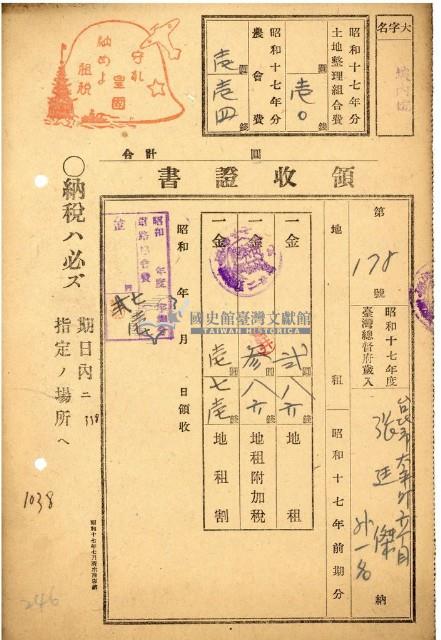 大字名
城内田
昭和十七年分
土地整理組合費
圓
壱〇
錢
昭和十七年分
農會費
圓
壱
壱四
錢
守れ
皇國
納めよ
租税
合計
圓
領收證書
第178號
昭和十七年度
臺灣總督府歲入
張廷傑
外一名
納
地租
昭和十七年前期分
一金
弐
圓
八六
錢
地租
一金
参
圓
八六
錢
地租附加税
一金
壱
圓
七壱
錢
地租割
昭和 年 月 日領收
昭和 年度
金
國史館臺灣文獻館
TAIWAN HISTORICA
〇納税ハ必ズ
期日内ニ
指定ノ場所ヘ
338
1038
246